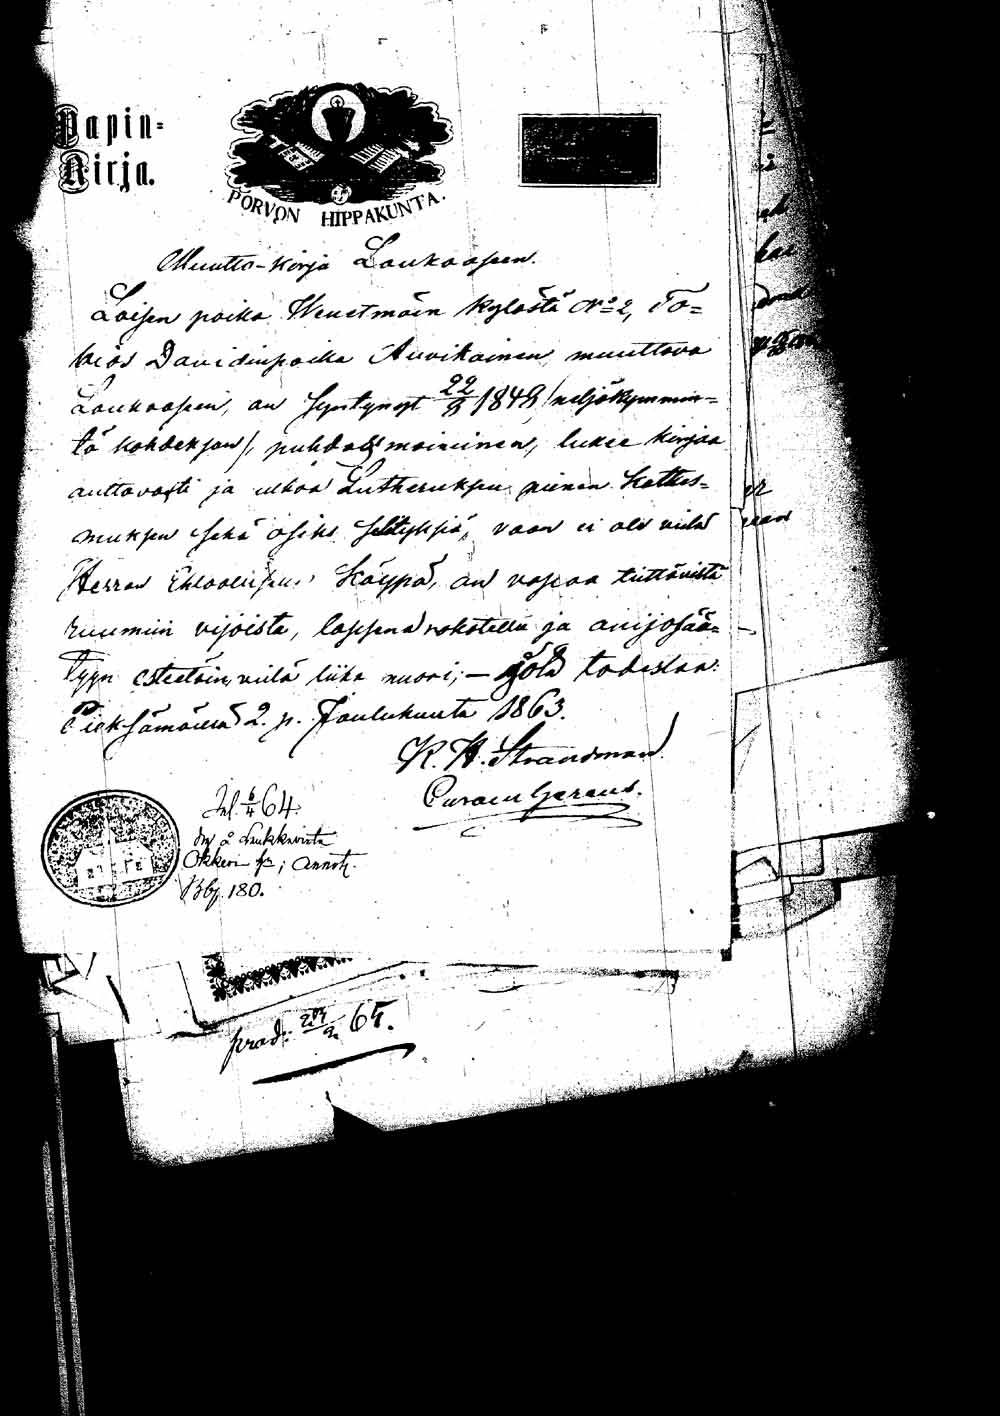 Papin-
Kirja.
PORVON HIPPAKUNTA.
Muutto-Kirja Laukaaseen.
Loisen poika Wenetmäin kylästä No 2, To-
bias Davidinpoika Auvikainen, muuttava
Laukaaseen, on syntynyt 22/8 1849 /neljäkymmin-
tä kahdeksan/, puhdas maininen, lukee kirjaa
auttavasti ja ulkoa Lutheruksen pienen Katkes-
muksen sekä osiks selityksiä, vaan ei ole vielä
Herran Ehtoolisen käypä, on vapaa tarttuvista
ruumiin vijoista, lapsena rokotettu ja avijosää-
tyyn esteetöin, vielä liika nuori; —
todistaa:
Pieksämäellä 2. p. Joulukuuta 1863.
K. H. Strandman
Curam Gerens.
Inl. 6/4 64.
Okkeri
Bbg. 180.
prod: 65.